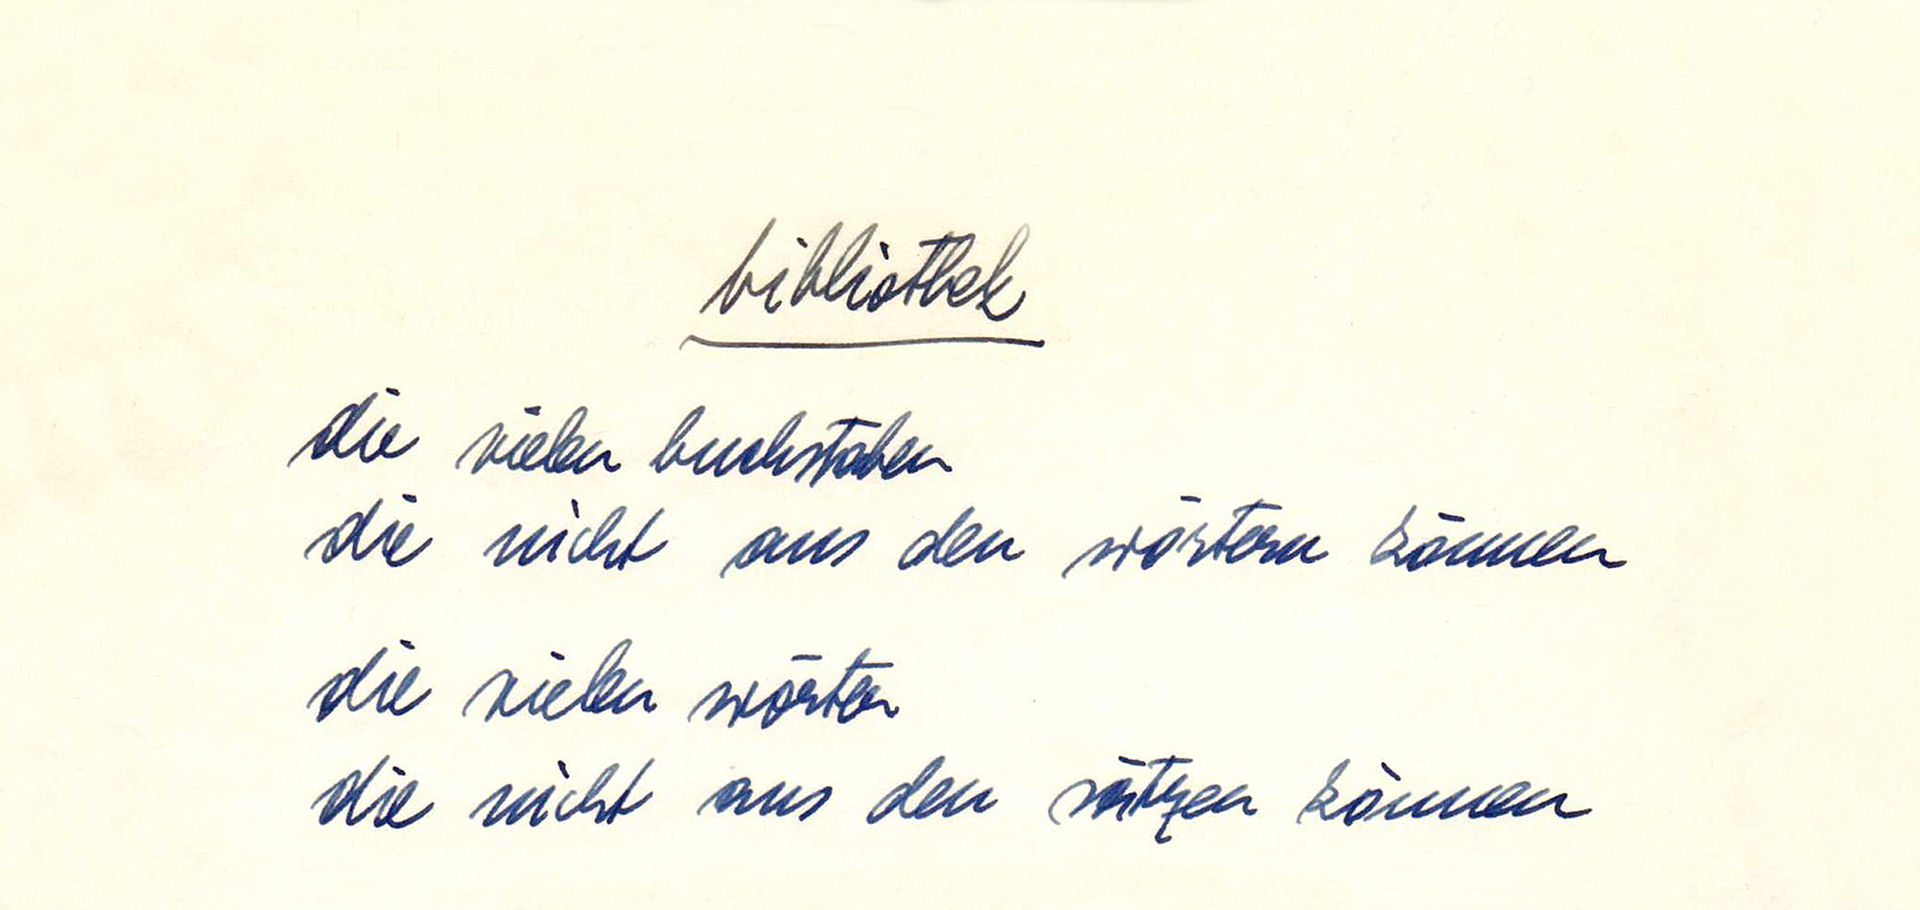 bibliothek
die vielen buchstaben
die nicht aus den wörtern können
die vielen wörter
die nicht aus den sätzen können